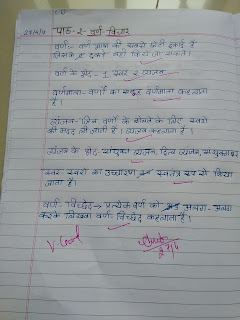 पाठ-2- वर्ण विचार
वर्ण:- वर्ण भाषा की सबसे छोटी इकाई है
जिसके टुकड़े नहीं किये जा सकते।
वर्ण के भेद- 1 स्वर 2 व्यंजन
वर्णमाला- वर्णों का समूह वर्णमाला कहलाता
है।
व्यंजन- जिन वर्णों के बोलने के लिए स्वरों
की मदद ली जाती है। व्यंजन कहलाता है।
व्यंजन के भेद- संयुक्त व्यंजन, द्वित्व व्यंजन, संयुक्ताक्षर
स्वर- स्वरों का उच्चारण स्वतंत्र रूप से किया
जाता है।
वर्ण- विच्छेद → प्रत्येक वर्ण को अलग- अलग
करके लिखना वर्ण- विच्छेद कहलाता है।
V. Good